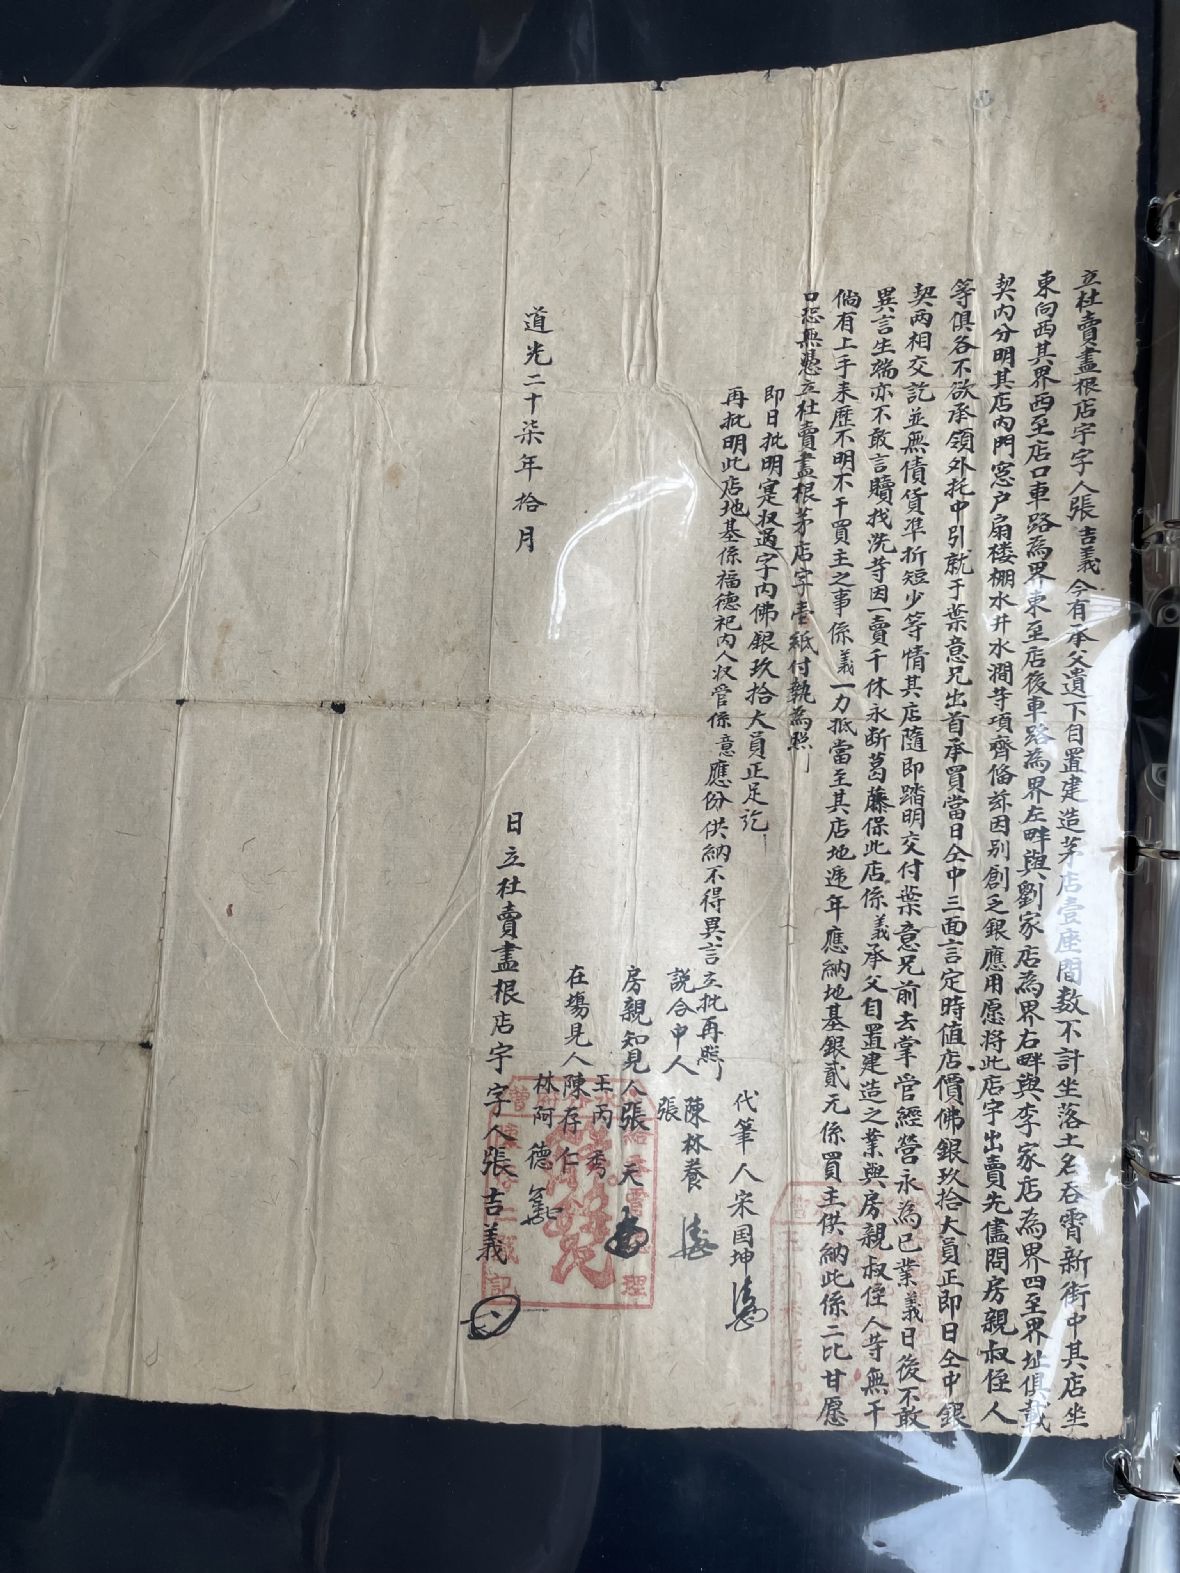 立杜賣盡根店字字人張吉義今有承父遺下自置建造茅店壹座間数不計坐落土名吞霄新街中其店坐
東向西其界西至店口車路為界東至店後車路為界左畔與劉家店為界右畔與李家店為界四至界址俱載
契内分明其店内門窓户扇楼棚水井水澗等項齊俻茲因别創乏銀應用愿將此店字出賣先儘問房親叔侄人
等俱各不欲承領外托中引就于葉意兄出首承買當日仝中三面言定時值店價佛銀玖拾大員正即日仝中銀
契两相交訖並無債貨凖折短少等情其店隨即踏明交付葉意兄前去掌管經營永為已業義日後不敢
異言生端亦不敢言贖找洗等因一賣千休永断葛藤保此店係義承父自置建造之業與房親叔侄人等無干
倘有上手来歷不明不干買主之事係義一力抵當至其店地逓年應納地基銀貳元係買主供納此係二比甘愿
口恐無憑立杜賣盡根茅店字壹紙付執為照
即日批明寔収過字内佛銀玖拾大員正足訖
再批明此店地基係福德祀内人収管係意應份供納不得異言立批再照
代筆人宋国坤
説合中人陳林養
張
房親知見人張天
王丙秀
在塲見人陳存仁
林阿德
道光二十柒年拾月 日立杜賣盡根店字字人張吉義